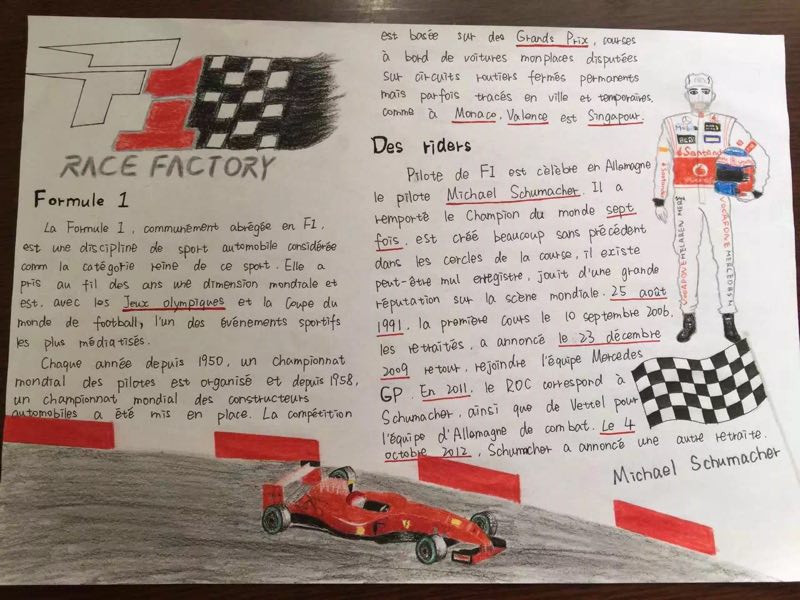 F1
RACE FACTORY
Formule 1
La Formule 1, communément abrégée en F1,
est une discipline de sport automobile considérée
comm la catégorie reine de ce sport. Elle a
pris au fil des ans une dimension mondiale et
est, avec les Jeux olympiques et la Coupe du
monde de football, l'un des événements sportifs
les plus médiatisés.
Chaque année depuis 1950, un championnat
mondial des pilotes est organisé et depuis 1958,
un championnat mondial des constructeurs
automobiles a été mis en place. La compétition
est basée sur des Grands Prix, courses
à bord de voitures monplaces disputées
sur circuits routiers fermés permanents
mais parfois tracés en ville et temporaires,
comme à Monaco, Valence est Singapour.
Des riders
Pilote de F1 est célèbre en Allemagne
le pilote Michael Schumacher. Il a
remporté le Champion du monde sept
fois, est créé beaucoup sans précédent
dans les cercles de la course, il existe
peut-être mul enregistre, jouit d'une grande
réputation sur la scène mondiale. 25 août
1991, la première cours le 10 septembre 2006,
les retraités, a annoncé le 23 décembre
2009 retour, rejoindre l'équipe Mercedes
GP. En 2011, le ROC correspond à
Schumacher, ainsi que de Vettel pour
l'équipe d'Allemagne de combat. Le 4
octobre 2012, Schumacher a annoncé une autre retraite.
Michael Schumacher
Santand
VODAFONE MCLAREN MERC
VODAFONE MERCEDES